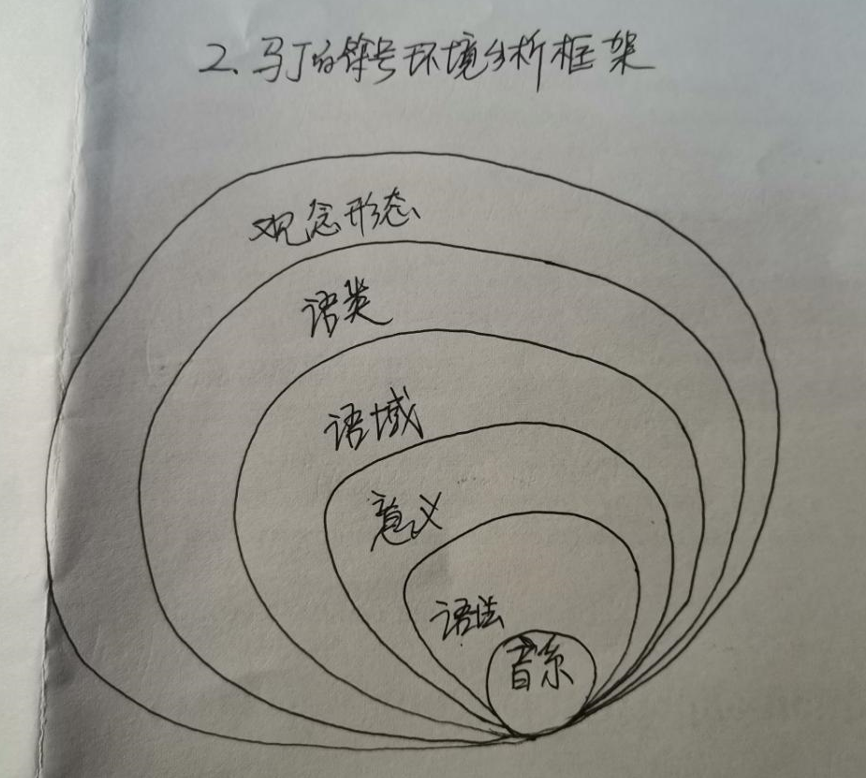 2、马丁的符号环境分析框架
观念形态
语类
语域
意义
语法
音系